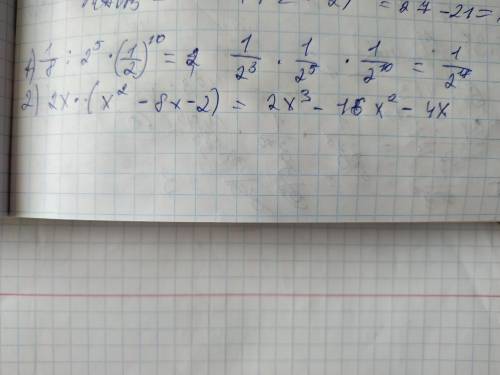 = 27 - 21 =
1) 1/8 : 2⁵ · (1/2)¹⁰ = 1/2³ · 1/2⁵ · 1/2¹⁰ =
2) 2x · (x² - 8x - 2) = 2x³ - 16x² - 4x